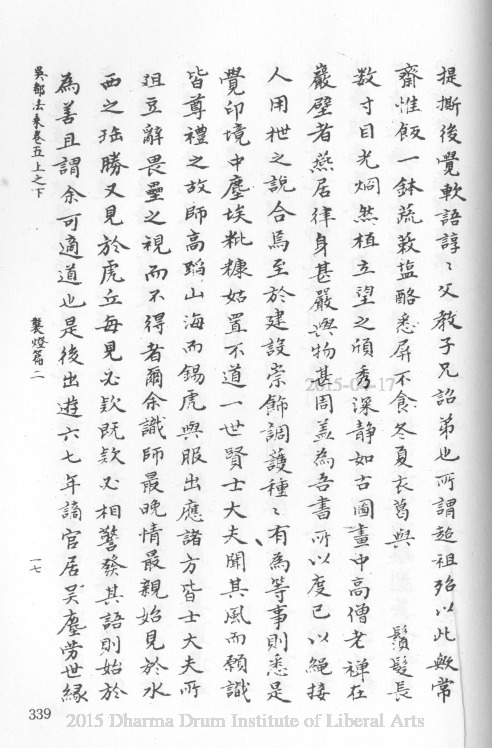 提撕後覺軟語諄〻父教子兄詔弟也所謂超祖殆以此歟常
齋惟飯一鉢蔬蔌塩酪悉屏不食冬夏衣葛與　鬚髮長
数寸目光烱然植立望之頎秀深静如古圖畫中高僧老禅在
巖壁者燕居律身甚嚴與物甚周盖為吾書所以度已以繩接
人用枻之說合焉至於建設崇飾調護種〻有為等事則悉是
覺印境中塵埃粃糠姑置不道一世賢士大夫聞其風而願識
皆尊禮之故師高蹈山海而錫虎與服出應諸方皆士大夫所
俎豆辭畏壘之視而不得者爾余識師最晚情最親始見於水
西之珤勝又見於虎丘每見必欵既欵必相警發其語則始於
為善且謂余可適道也是後出遊六七年謫官居吴塵劳世縁
吳都法乗卷五上之下
襲燈篇二
一七
339
2015-04-17
2015 Dharma Drum Institute of Liberal Arts